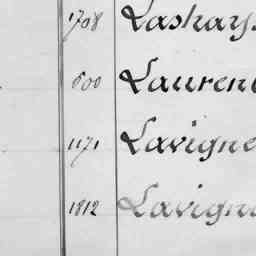 1708 Lashay
600 Laurent
1171 Lavigne
1812 Lavigne